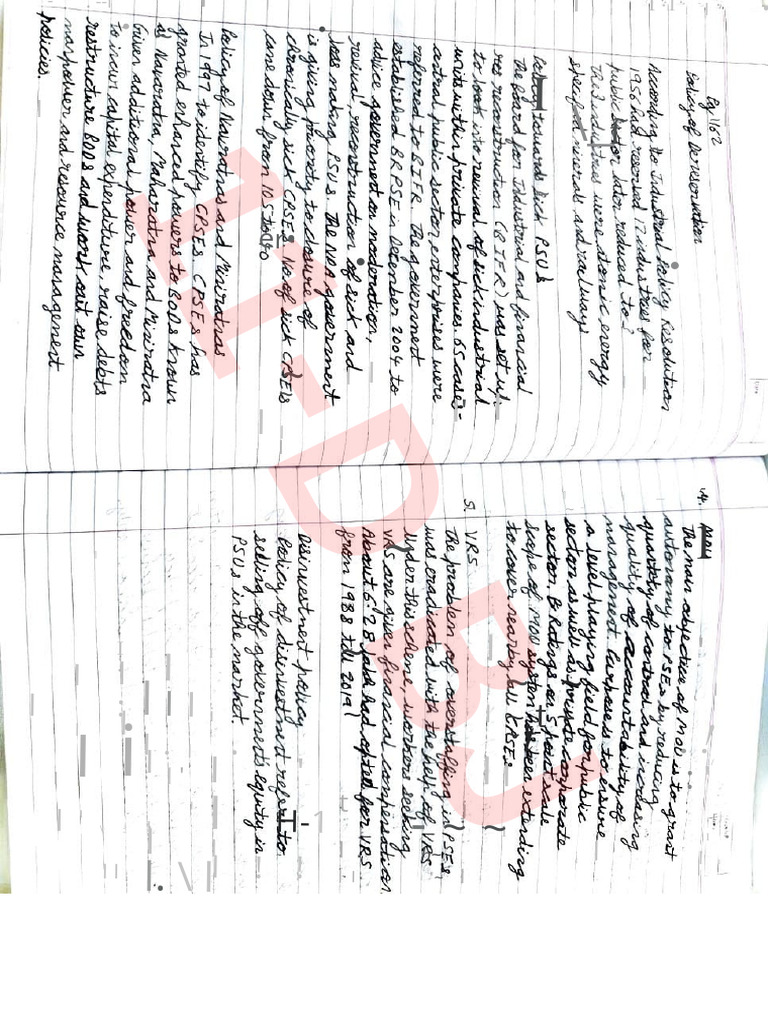 Pg 1162
Policy of Dereservation
According to Industrial Policy Resolution
1956 had reserved 17 industries for
public sector later reduced to
The industries were atomic energy
specified minerals and railways
towards Sick PSUs
The Board for Industrial and financial
reconstruction (BIFR) was set up
to look into revival of sick industrial
units within private companies. 65 cases
central public sector enterprises were
referred to BIFR. The government
established BRPSE in December 2004 to
advice government on moderation,
revival, reconstruction of sick and
loss making PSUs. The NDA government
is giving priority to closure of
chronically sick CPSEs. No of sick CPSEs
came down from 105 to 40
Policy of Navratnas and Miniratnas
In 1997 to identify CPSEs CPSEs has
granted enhanced powers to BODs known
as Navratna, Maharatna and Miniratna
Given additional power and freedom
to incur capital expenditure, raise debts
restructure BODs and work out own
manpower and resource management
policies.
4. MOU
The main objective of MOU is to grant
autonomy to PSEs by reducing
quantity of control and increasing
quality of accountability of
management. Purpose is to ensure
a level playing field for public
sector as well as private corporate
sector. Ratings on 5 point scale
scope of MOU system been extending
to cover nearby all CPSEs.
5. VRS
The problem of overstaffing in PSEs
was eradicated with the help of VRS
Under this scheme, workers seeking
VRS are given financial compensation.
About 6.28 lakh had opted for VRS
from 1988 till 2019
Disinvestment policy
Policy of disinvestment refers to
selling off government's equity in
PSUs in the market.
11-D BJ